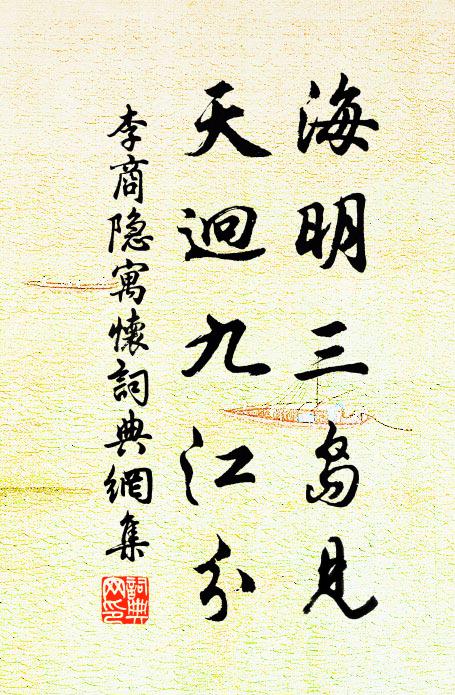 海明三島見
天迥九江分
李商隐寓懷詞典網集
詞典网印